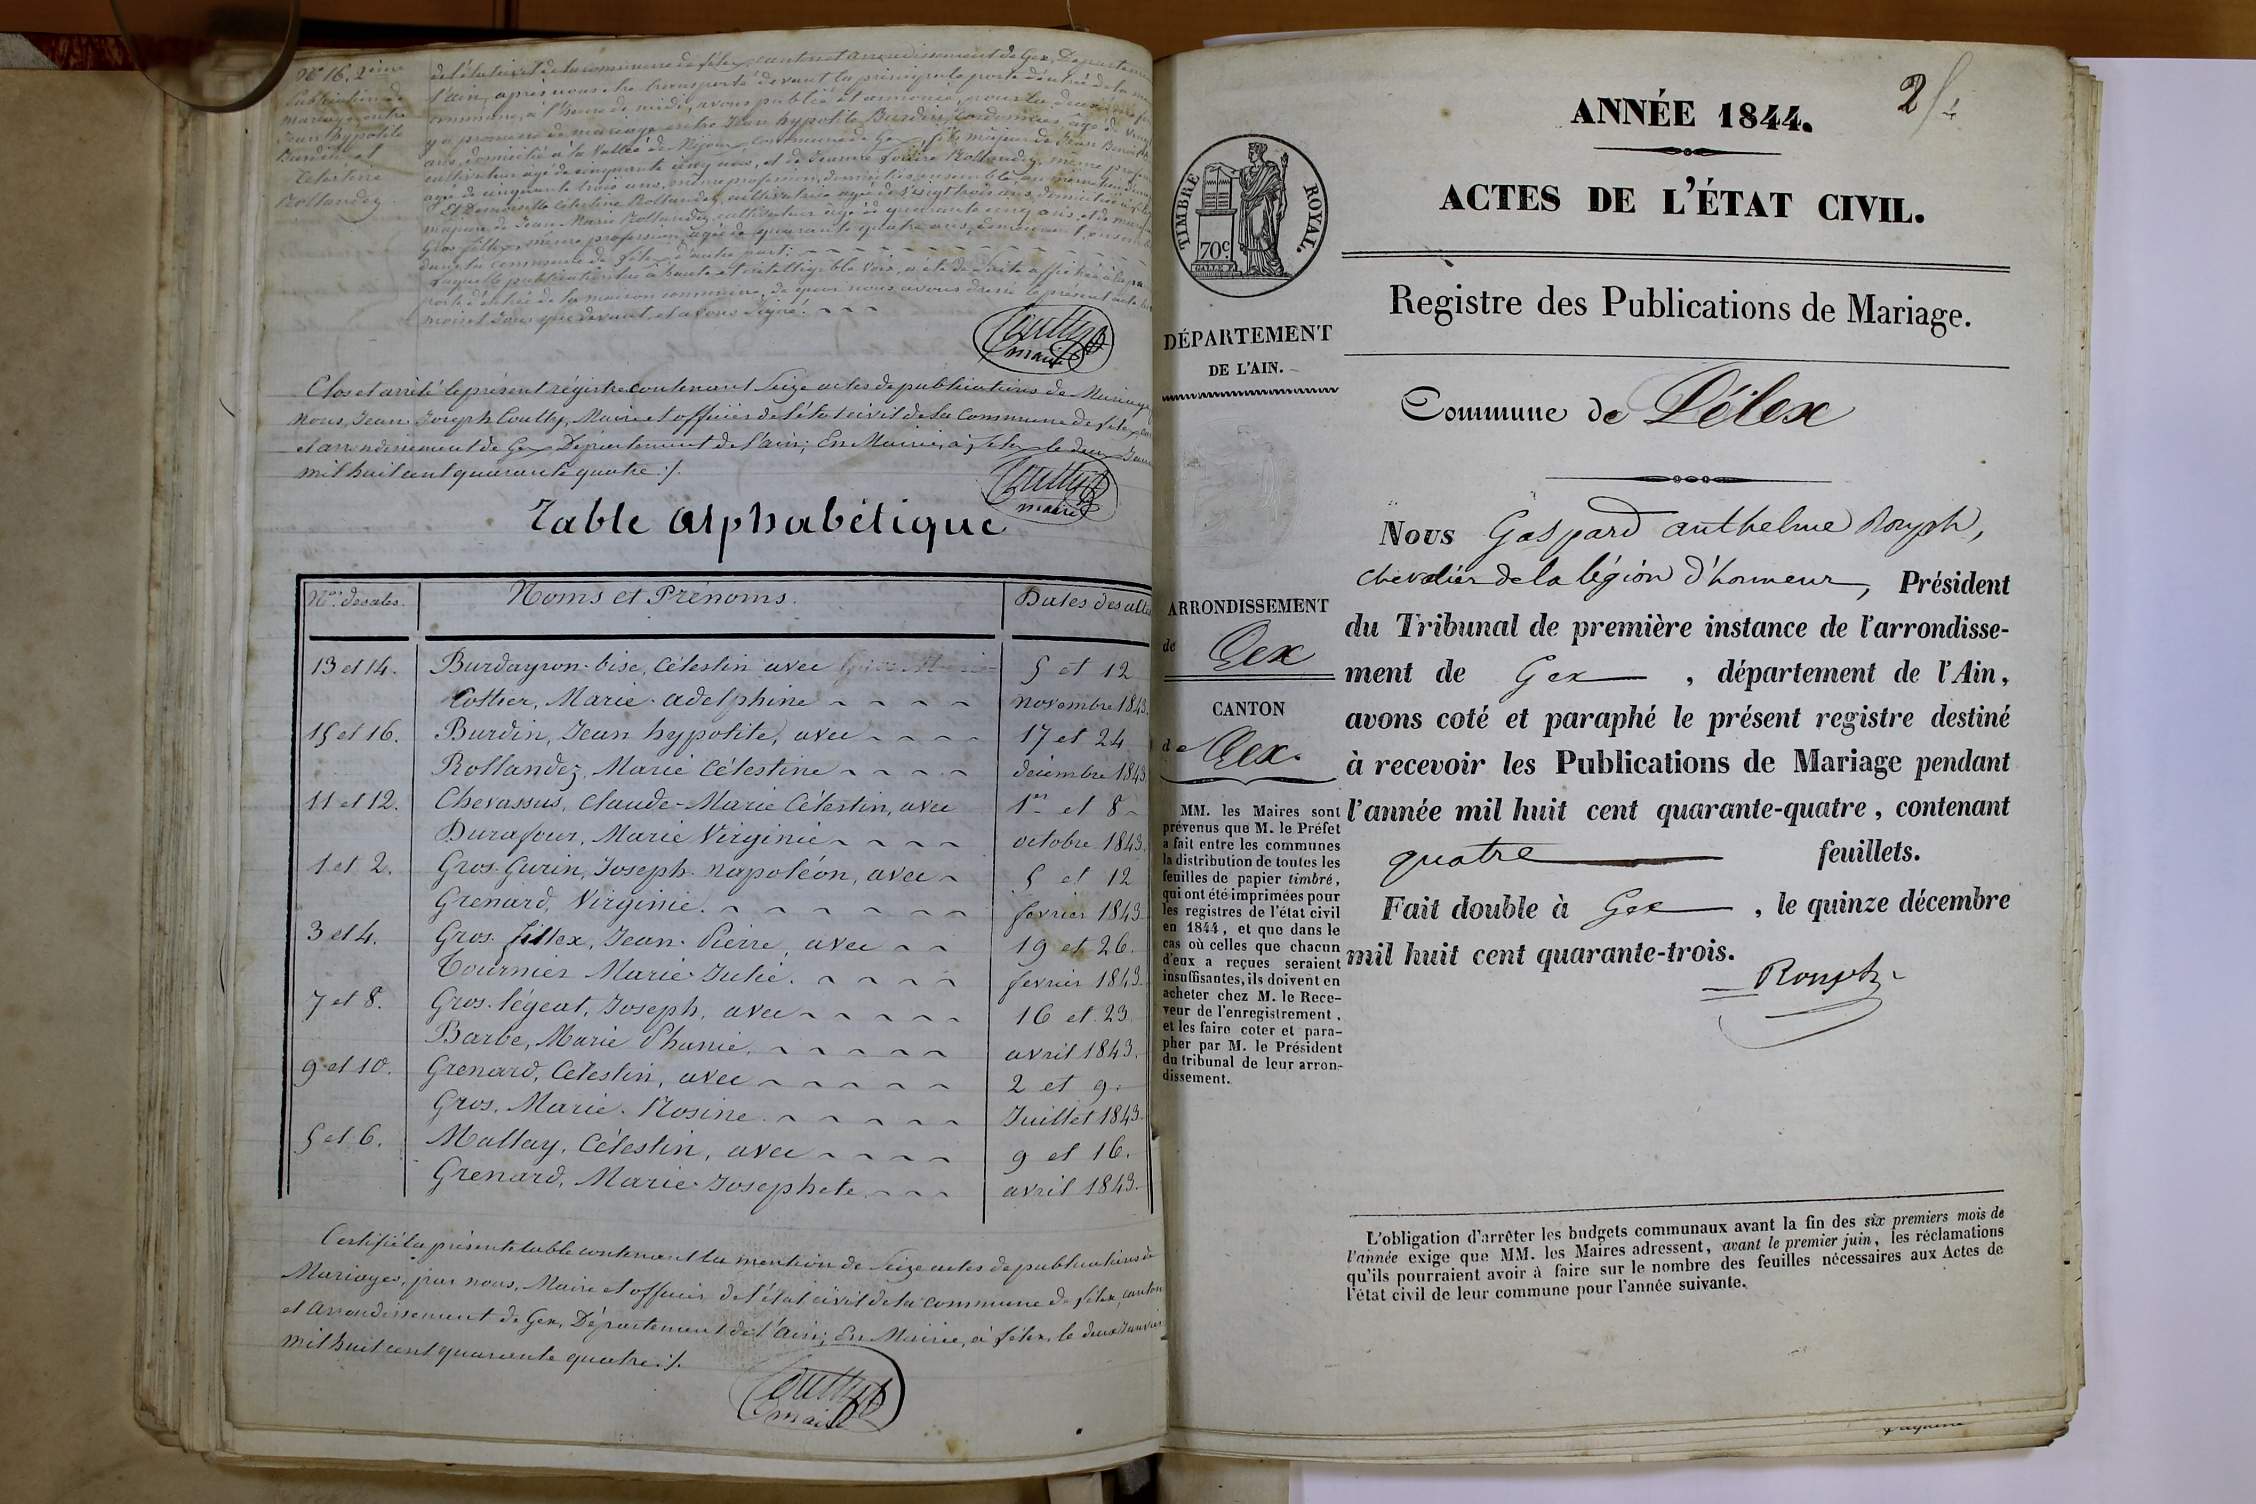 N.° 16. 2ième
Publication de
mariage entre
Jean hypolite
Burdin et
Célestine
Rollandez.
de l'état civil de la commune de Lélex, canton et arrondissement de Gex, Département
l'ain, après nous être transporté devant la principale porte d'entrée de la
commune, à l'heure de midi, avons publié et annoncé, pour la deuxième
y a promesse de mariage entre Jean hypolite Burdin, Cordonnier âgé de
ans, domicilié à la Vallée de Mijoux, Commune de Gex, fils majeur de Jean
cultivateur âgé de cinquante cinq ans, et de Jeanne Rollandez, même
âgée de cinquante trois ans, même profession, domiciliés ensemble
Et Demoiselle Célestine Rollandez, cultivatrice âgée de vingt trois ans, domiciliée à
majeure de Jean Marie Rollandez, cultivateur âgé de quarante cinq ans, et de
Gros fillex, même profession, âgée de quarante quatre ans, demeurant ensemble
dans la commune de Lélex, d'autre part:
Laquelle publication lue à haute et intelligible voix, a été de suite affichée à la
porte d'entrée de la maison commune, de quoi nous avons dressé le présent acte les
mois et Jour que devant, et avons Signé.
Coutty
maire
Clos et arrêté le présent régistre contenant Seize actes de publications de Mariage
Nous, Jean Joseph Coutty, Maire et officier de l'état civil de la Commune de Lélex,
et arrondissement de Gex, Département de l'ain; En Mairie, à Lélex le deux
mil huit cent quarante quatre ./.
Coutty
maire
Table alphabétique
N.os des actes. Noms et Prénoms. Dates des actes
13 et 14. Burdayron-bise, Célestin avec 5 et 12
Cottier, Marie-adelphine novembre 1843.
15 et 16. Burdin, Jean hypolite, avec 17 et 24
Rollandez, Marie Célestine décembre 1843
11 et 12. Chevassus, Claude-Marie Célestin, avec 1er et 8
Durafour, Marie Virginie octobre 1843.
1 et 2. Gros-Gurin, Joseph-napoléon, avec 5 et 12
Grenard, Virginie. fevrier 1843
3 et 4. Gros-fillex, Jean-Pierre, avec 19 et 26.
Tournier Marie-Julie. fevrier 1843.
7 et 8. Gros-légeat, Joseph, avec 16 et 23
Barbe, Marie Phanie. avril 1843.
9 et 10. Grenard, Célestin, avec 2 et 9.
Gros, Marie-Rosine Juillet 1843.
5 et 6. Mallay, Célestin, avec 9 et 16.
Grenard, Marie-Josephete avril 1843.
Certifié la présente table contenant la mention de Seize actes de publications de
Mariages, par nous, Maire et officier de l'état civil de la commune de Lélex, canton
et arrondissement de Gex, Département de l'ain; En Mairie, à Lélex, le deux Janvier
mil huit cent quarante quatre ./.
Coutty
maire
2/4
ANNÉE 1844.
ACTES DE L'ÉTAT CIVIL.
TIMBRE ROYAL.
70c
Registre des Publications de Mariage.
DÉPARTEMENT
DE L'AIN.
Commune de Lélex
ARRONDISSEMENT
de Gex
CANTON
de Gex.
MM. les Maires sont
prévenus que M. le Préfet
a fait entre les communes
la distribution de toutes les
feuilles de papier timbré,
qui ont été imprimées pour
les registres de l'état civil
en 1844, et que dans le
cas où celles que chacun
d'eux a reçues seraient
insuffisantes, ils doivent en
acheter chez M. le Rece-
veur de l'enregistrement,
et les faire coter et para-
pher par M. le Président
du tribunal de leur arron-
dissement.
Nous Gaspard anthelme Rouph,
chevalier de la légion d'honneur, Président
du Tribunal de première instance de l'arrondisse-
ment de Gex , département de l'Ain,
avons coté et paraphé le présent registre destiné
à recevoir les Publications de Mariage pendant
l'année mil huit cent quarante-quatre, contenant
quatre feuillets.
Fait double à Gex , le quinze décembre
mil huit cent quarante-trois.
Rouph
L'obligation d'arrêter les budgets communaux avant la fin des six premiers mois de
l'année exige que MM. les Maires adressent, avant le premier juin, les réclamations
qu'ils pourraient avoir à faire sur le nombre des feuilles nécessaires aux Actes de
l'état civil de leur commune pour l'année suivante.